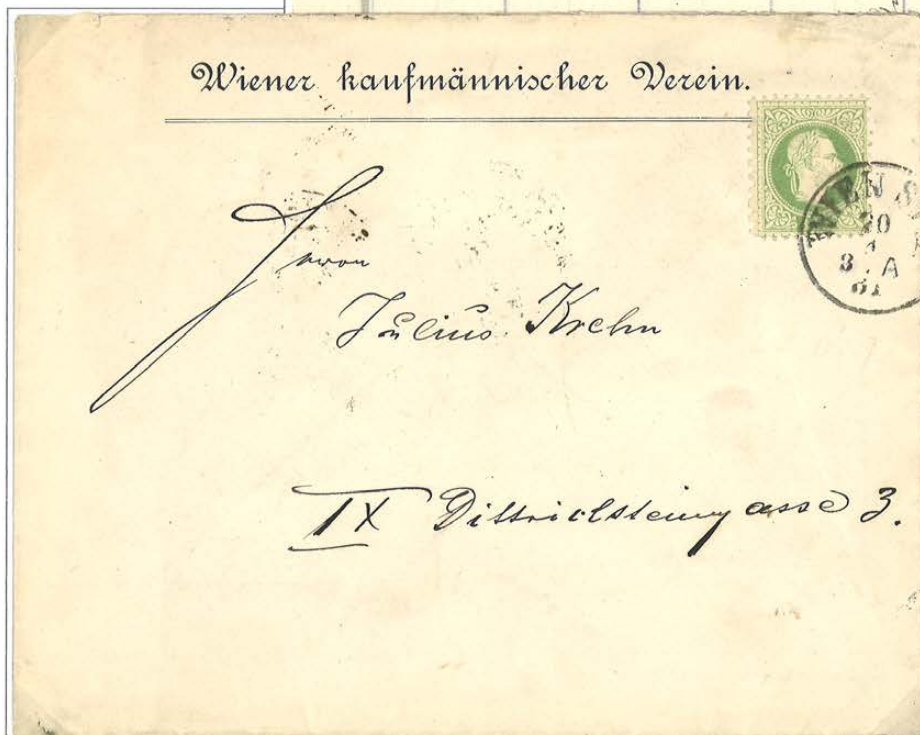 Wiener kaufmännischer Verein.
WIEN
20
1
3 A
81
Herrn
Julius Krehn
IX Dittrichsteingasse 3.